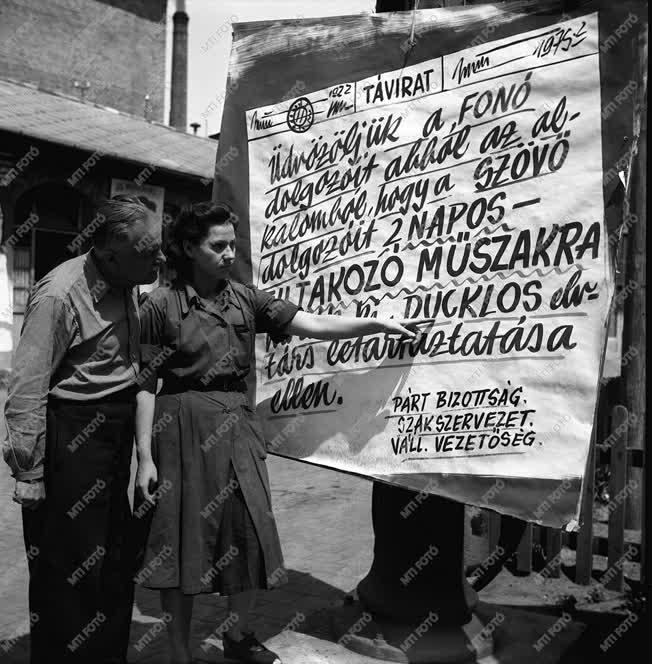 TÁVIRAT
1975
Üdvözöljük a FONÓ
dolgozóit abból az al-
kalomból, hogy a SZÖVŐ
dolgozóit 2 NAPOS-
TAKOZÓ MŰSZAKRA
DUCKLOS elv-
társ letartóztatása
ellen.
PÁRT BIZOTTSÁG.
SZAKSZERVEZET.
VÁLL. VEZETŐSÉG.
MTI FOTÓ